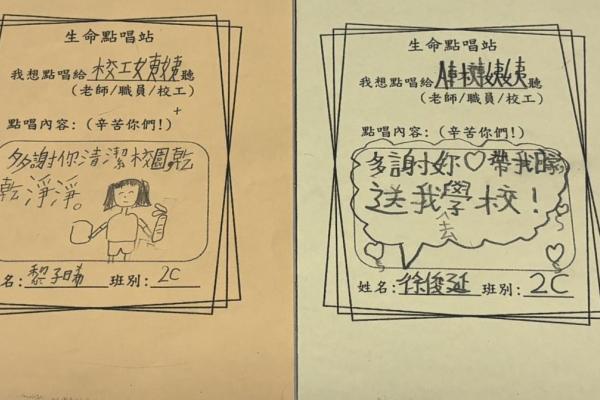 生命點唱站
我想點唱給校工姨姨聽
(老師/職員/校工)
點唱內容:(辛苦你們!)
多謝你清潔校園,乾
乾淨淨。
名:黎子晞 班別:2C
生命點唱站
我想點唱給校姨姨聽
(老師/職員/校工)
點唱內容:(辛苦你們!)
多謝妳♡帶我
送我去學校!
姓名:徐俊延 班別:2C